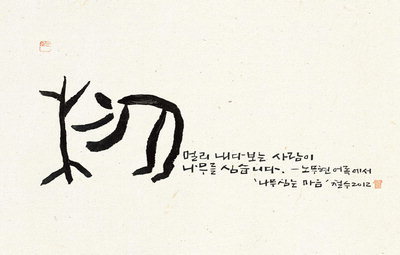 멀리 내다보는 사람이
나무를 심습니다. - 노무현 어록에서
'나무심는 마음' 철수 2012